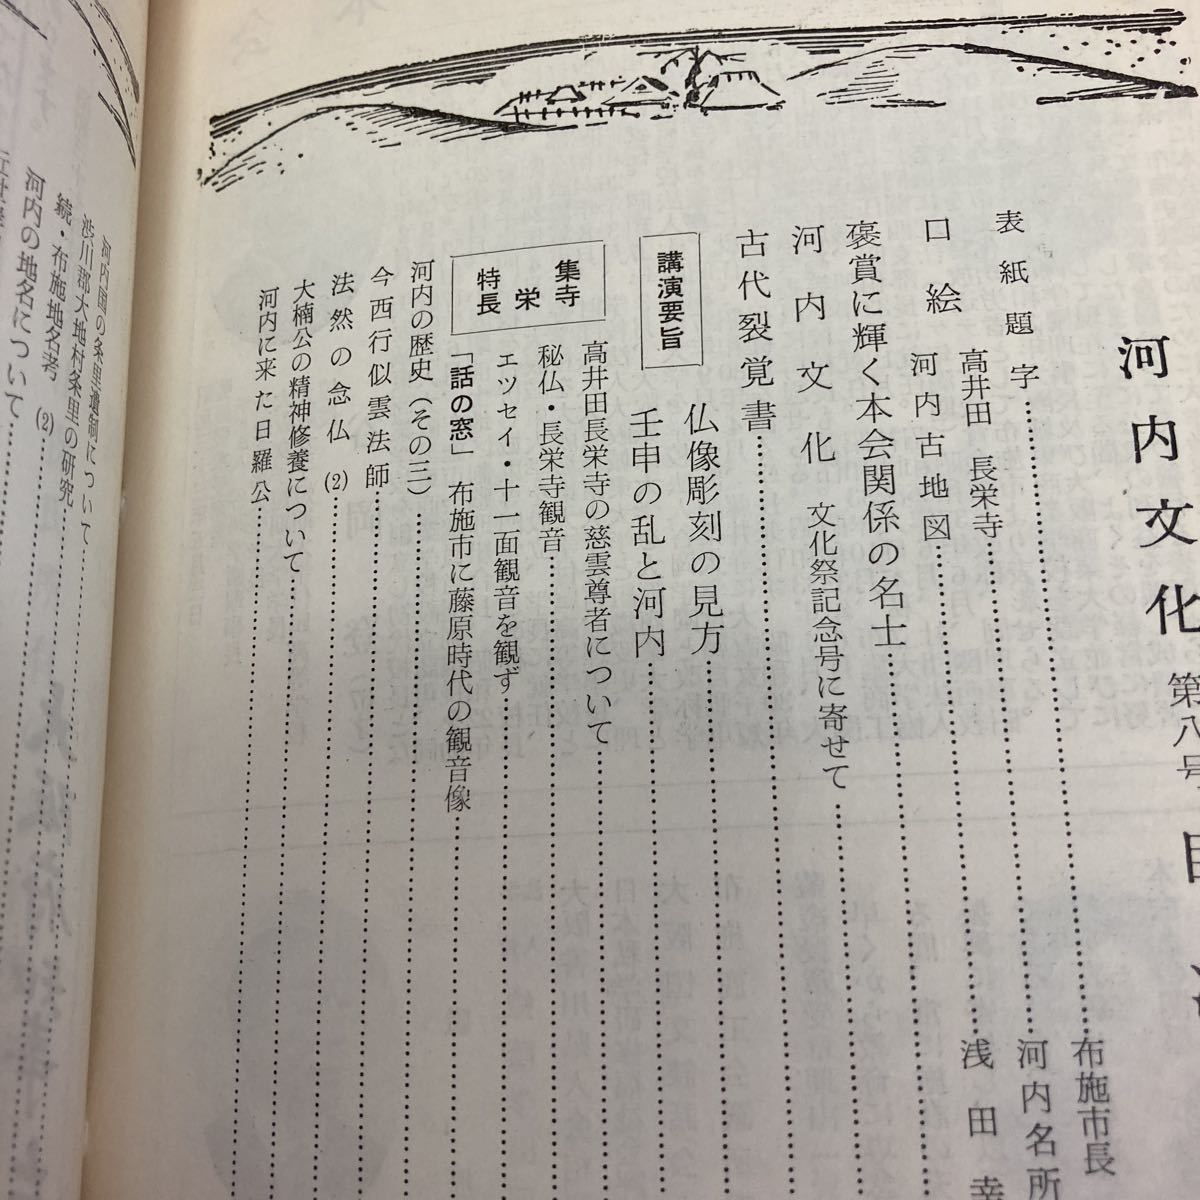 河内文化 第八号 目次
表紙題字 布施市長
口絵 高井田 長栄寺 河内名所
河内古地図 浅田幸
褒賞に輝く本会関係の名士
河内文化 文化祭記念号に寄せて
古代裂覚書
講演要旨
仏像彫刻の見方
壬申の乱と河内
長栄寺特集
高井田長栄寺の慈雲尊者について
秘仏・長栄寺観音
エツセイ・十一面観音を観ず
「話の窓」 布施市に藤原時代の観音像
河内の歴史(その三)
今西行似雲法師
法然の念仏 (2)
大楠公の精神修養について
河内に来た日羅公
河内国の条里遺制について
渋川郡大地村条里の研究
続・布施地名考 (2)
河内の地名について